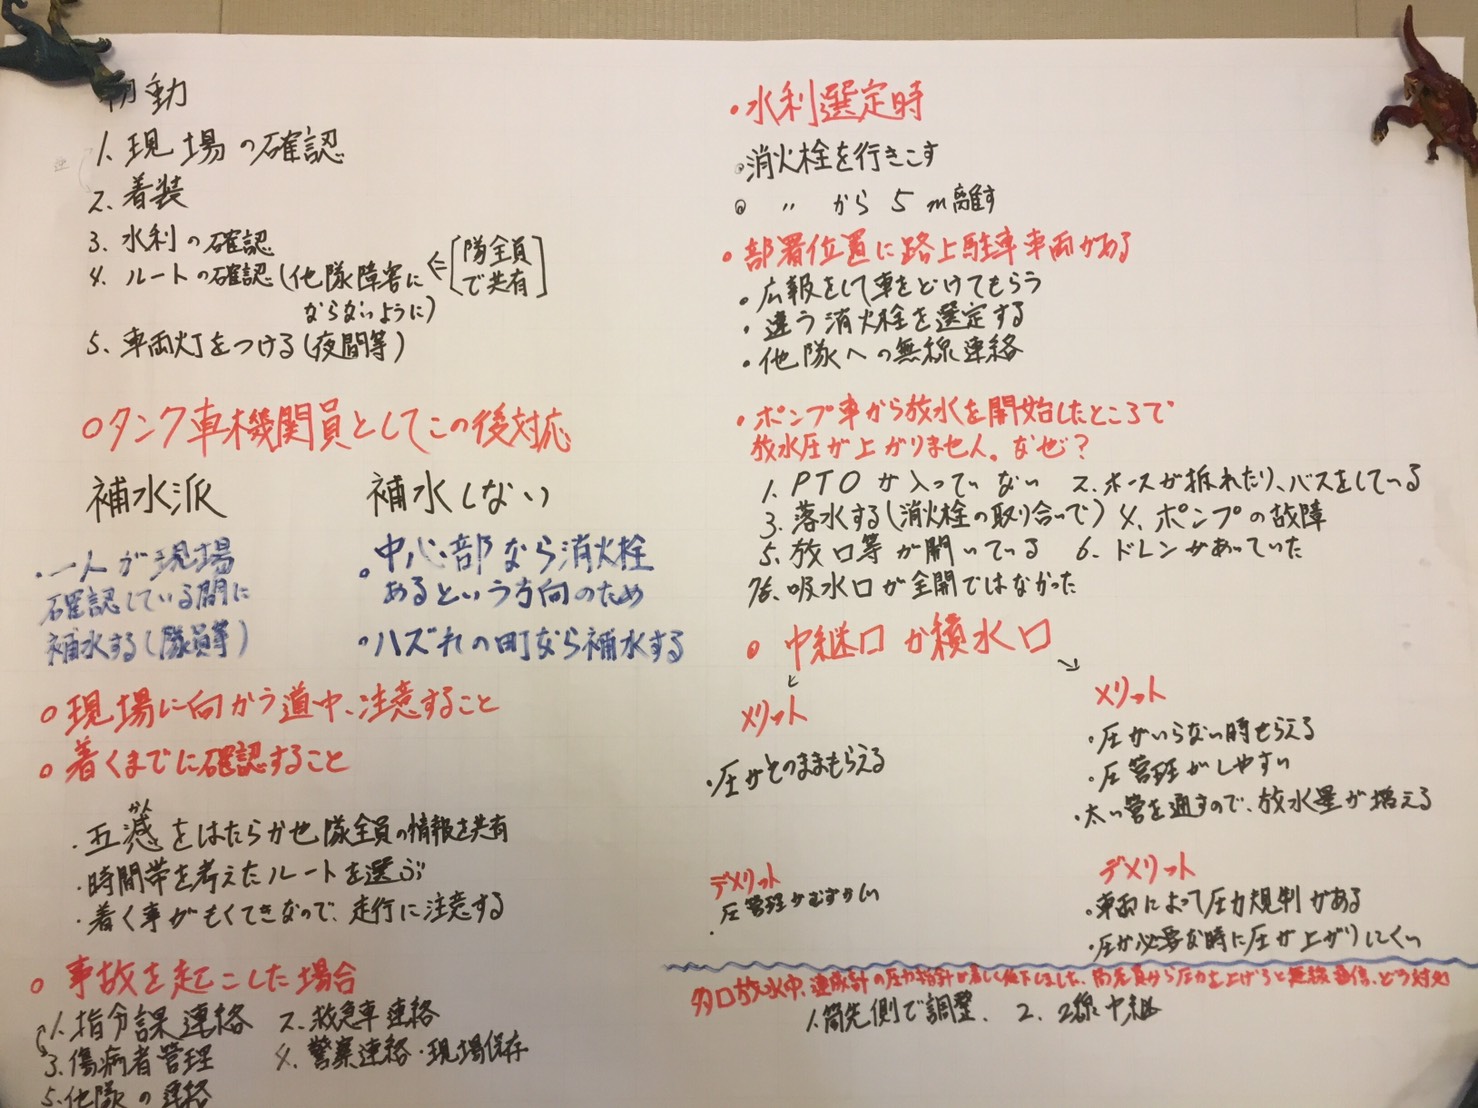 初動
1. 現場の確認
2. 着装
3. 水利の確認
4. ルートの確認(他隊障害に
ならないように)
⇐[隊全員
で共有]
5. 車両灯をつける(夜間等)
○タンク車機関員としてこの後対応
補水派
・一人が現場
確認している間に
補水する(隊員等)
補水しない
○中心部なら消火栓
あるという方向のため
○ハズれの町なら補水する
○現場に向かう道中、注意すること
○着くまでに確認すること
かん
・五減をはたらかせ隊全員の情報を共有
・時間帯を考えたルートを選ぶ
・着く事がもくてきなので、走行に注意する
○事故を起こした場合
1. 指令課連絡 2. 救急車連絡
3. 傷病者管理 4. 警察連絡・現場保存
5. 他隊の連絡
○水利選定時
○消火栓を行きこす
◎ 〃 から 5m離す
○部署位置に路上駐車車両がある
・広報をして車をどけてもらう
・違う消火栓を選定する
・他隊への無線連絡
○ポンプ車から放水を開始したところで
放水圧が上がりません。なぜ?
1. PTOが入っていない 2. ホースが折れたり、バスをしている
3. 落水する(消火栓の取り合いで) 4. ポンプの故障
5. 放口等が開いている 6. ドレンがあいていた
7. 吸水口が全開ではなかった
○中継口か積水口
メリット
・圧がそのままもらえる
デメリット
・圧管理がむずかしい
メリット
・圧がいらない時もらえる
・圧管理がしやすい
・太い管を通すので、放水量が増える
デメリット
・車両によって圧力規制がある
・圧が必要な時に圧が上がりにくい
多口放水中、連成計の圧力指針が著しく低下しました。筒先員から圧力を上げろと無線通信、どう対処
1. 筒先側で調整、 2. 2線中継